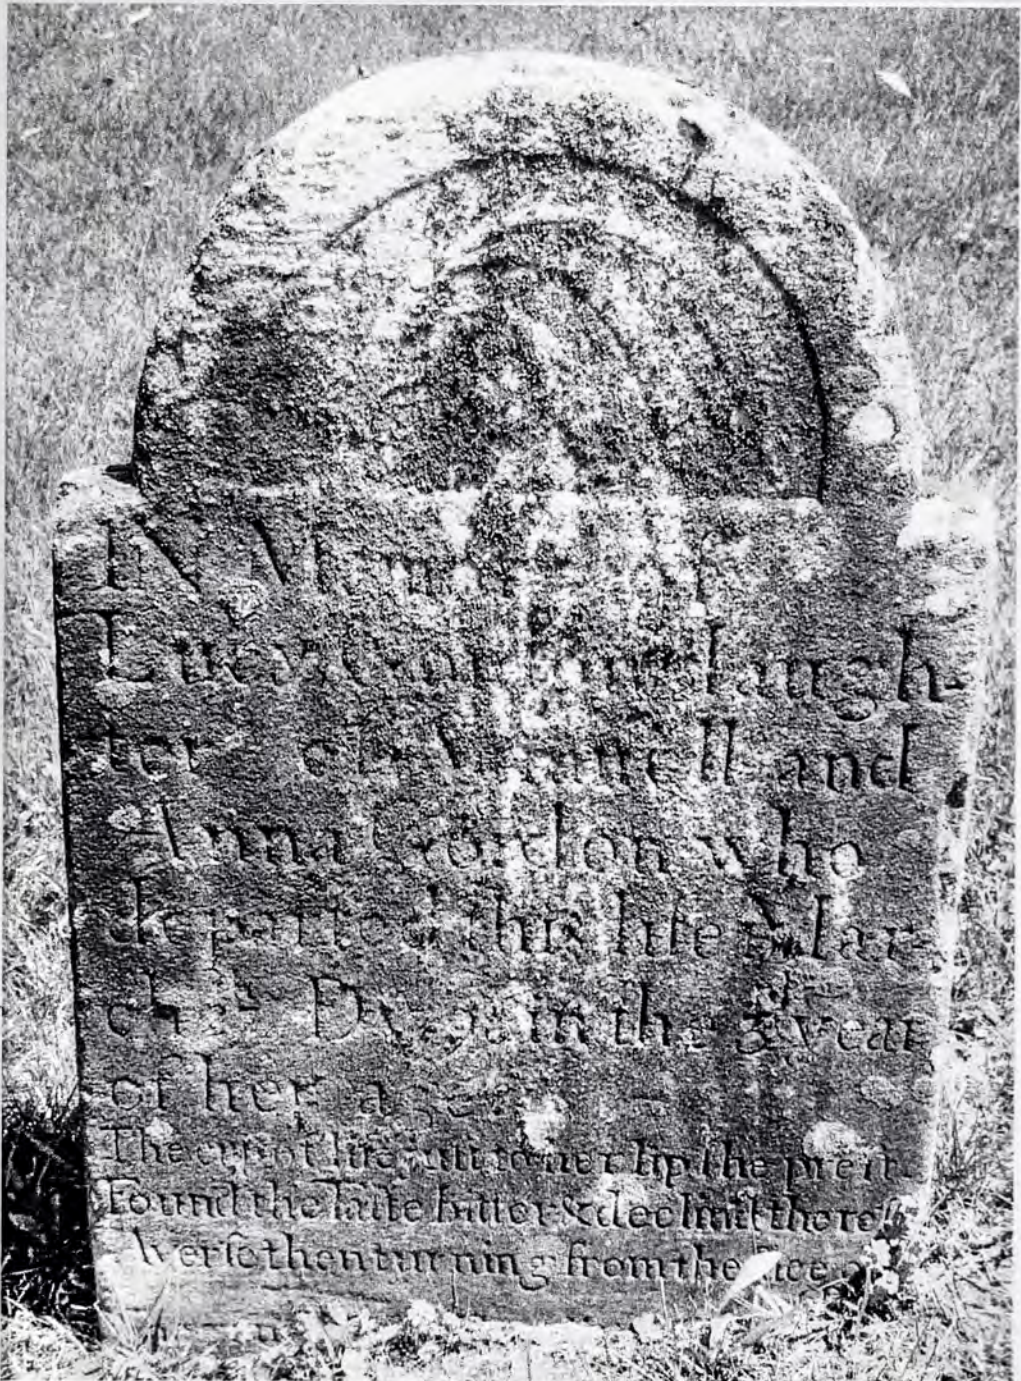 IN Mem
Lucy Gordon daugh-
ter of and
Anna Gordon who
departed this life Mar-
ch in the year
of her age
The cup of life just to her lip she prest
Found the Taste bitter & declin'd the rest
Averse then turning from the face of